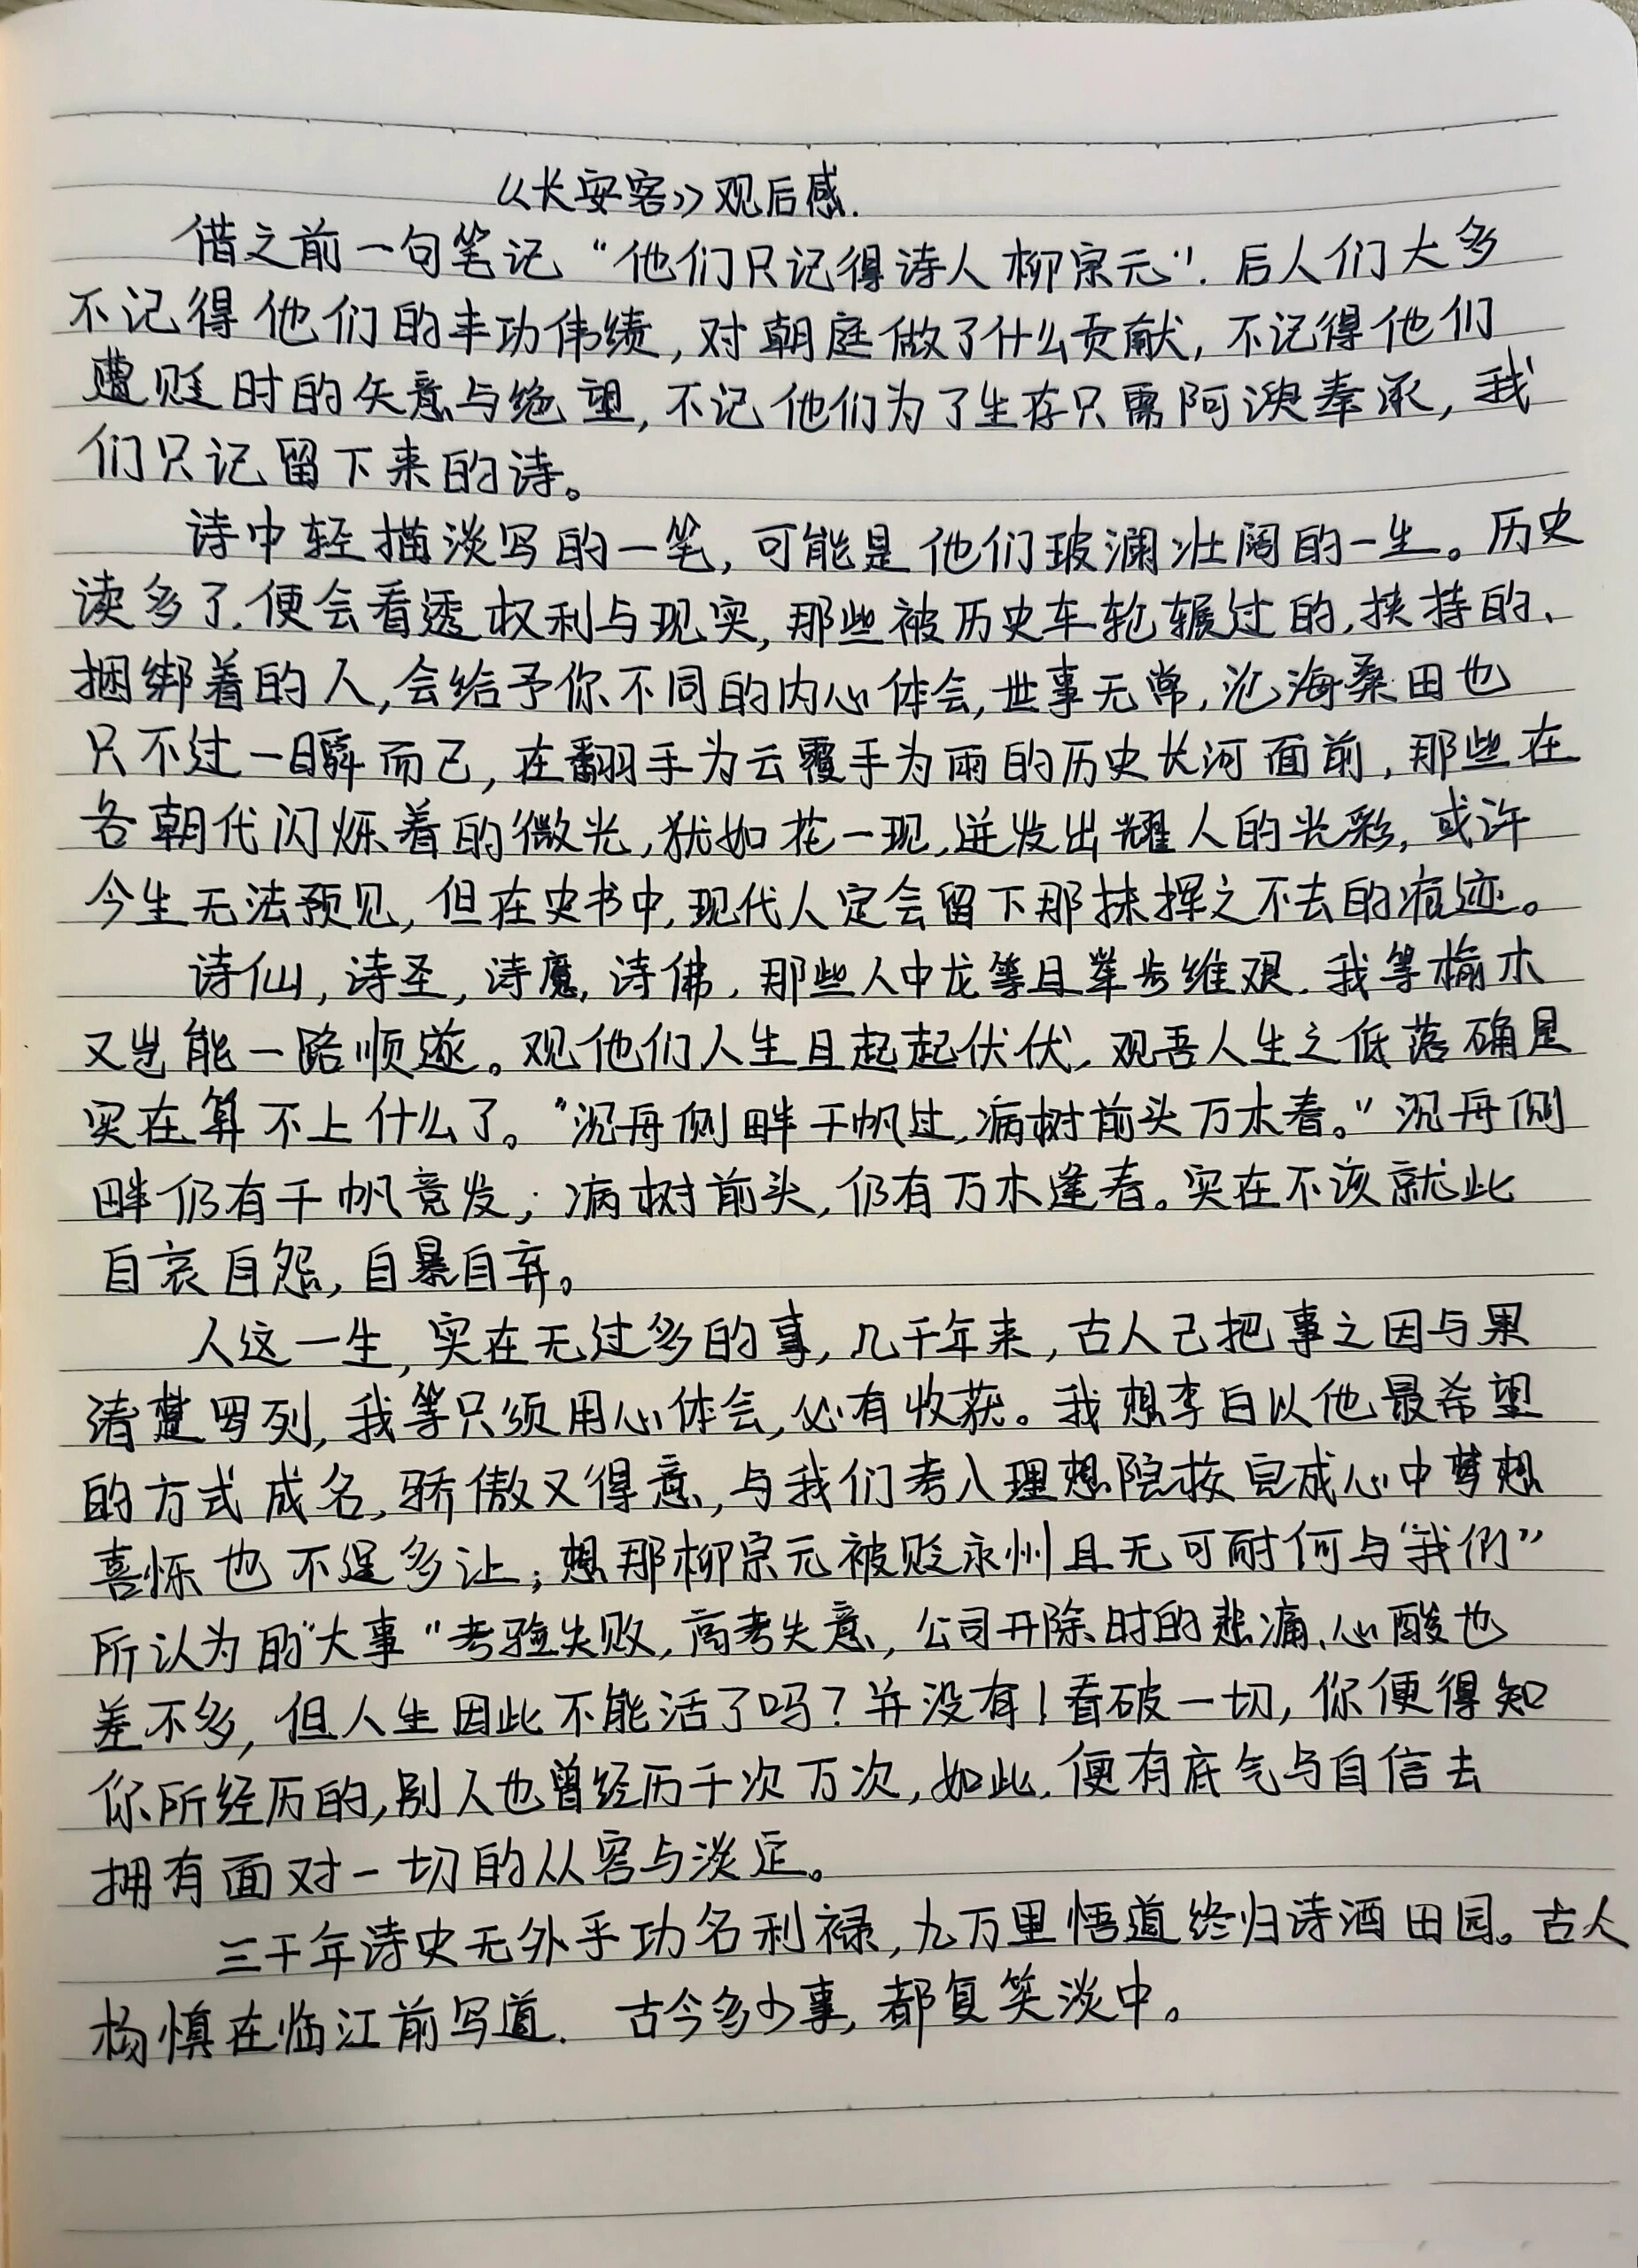 《长安客》观后感.
借之前一句笔记“他们只记得诗人柳宗元”.后人们大多
不记得他们的丰功伟绩,对朝庭做了什么贡献,不记得他们
遭贬时的失意与绝望,不记他们为了生存只需阿谀奉承,我
们只记留下来的诗。
诗中轻描淡写的一笔,可能是他们玻澜壮阔的一生。历史
读多了.便会看透权利与现实,那些被历史车轮辗过的,挟持的、
捆绑着的人,会给予你不同的内心体会,世事无常,沧海桑田也
只不过一瞬而已,在翻手为云覆手为雨的历史长河面前,那些在
各朝代闪烁着的微光,犹如花一现,迸发出耀人的光彩,或许
今生无法预见,但在史书中,现代人定会留下那抹挥之不去的痕迹。
诗仙,诗圣,诗魔,诗佛,那些人中龙等且举步维艰.我等榆木
又岂能一路顺遂。观他们人生且起起伏伏,观吾人生之低落确是
实在算不上什么了。“沉舟侧畔千帆过,病树前头万木春。”沉舟侧
畔仍有千帆竞发;病树前头,仍有万木逢春。实在不该就此
自哀自怨,自暴自弃。
人这一生,实在无过多的事,几千年来,古人已把事之因与果
清楚罗列,我等只须用心体会,必有收获。我想李白以他最希望
的方式成名,骄傲又得意,与我们考入理想院校完成心中梦想
喜悦也不遑多让;想那柳宗元被贬永州且无可耐何与“我们”
所认为的“大事”考验失败,高考失意,公司开除时的悲痛、心酸也
差不多,但人生因此不能活了吗?并没有!看破一切,你便得知
你所经历的,别人也曾经历千次万次,如此.便有底气与自信去
拥有面对一切的从容与淡定。
三千年诗史无外乎功名利禄,九万里悟道终归诗酒田园。古人
杨慎在临江前写道. 古今多少事,都复笑淡中。